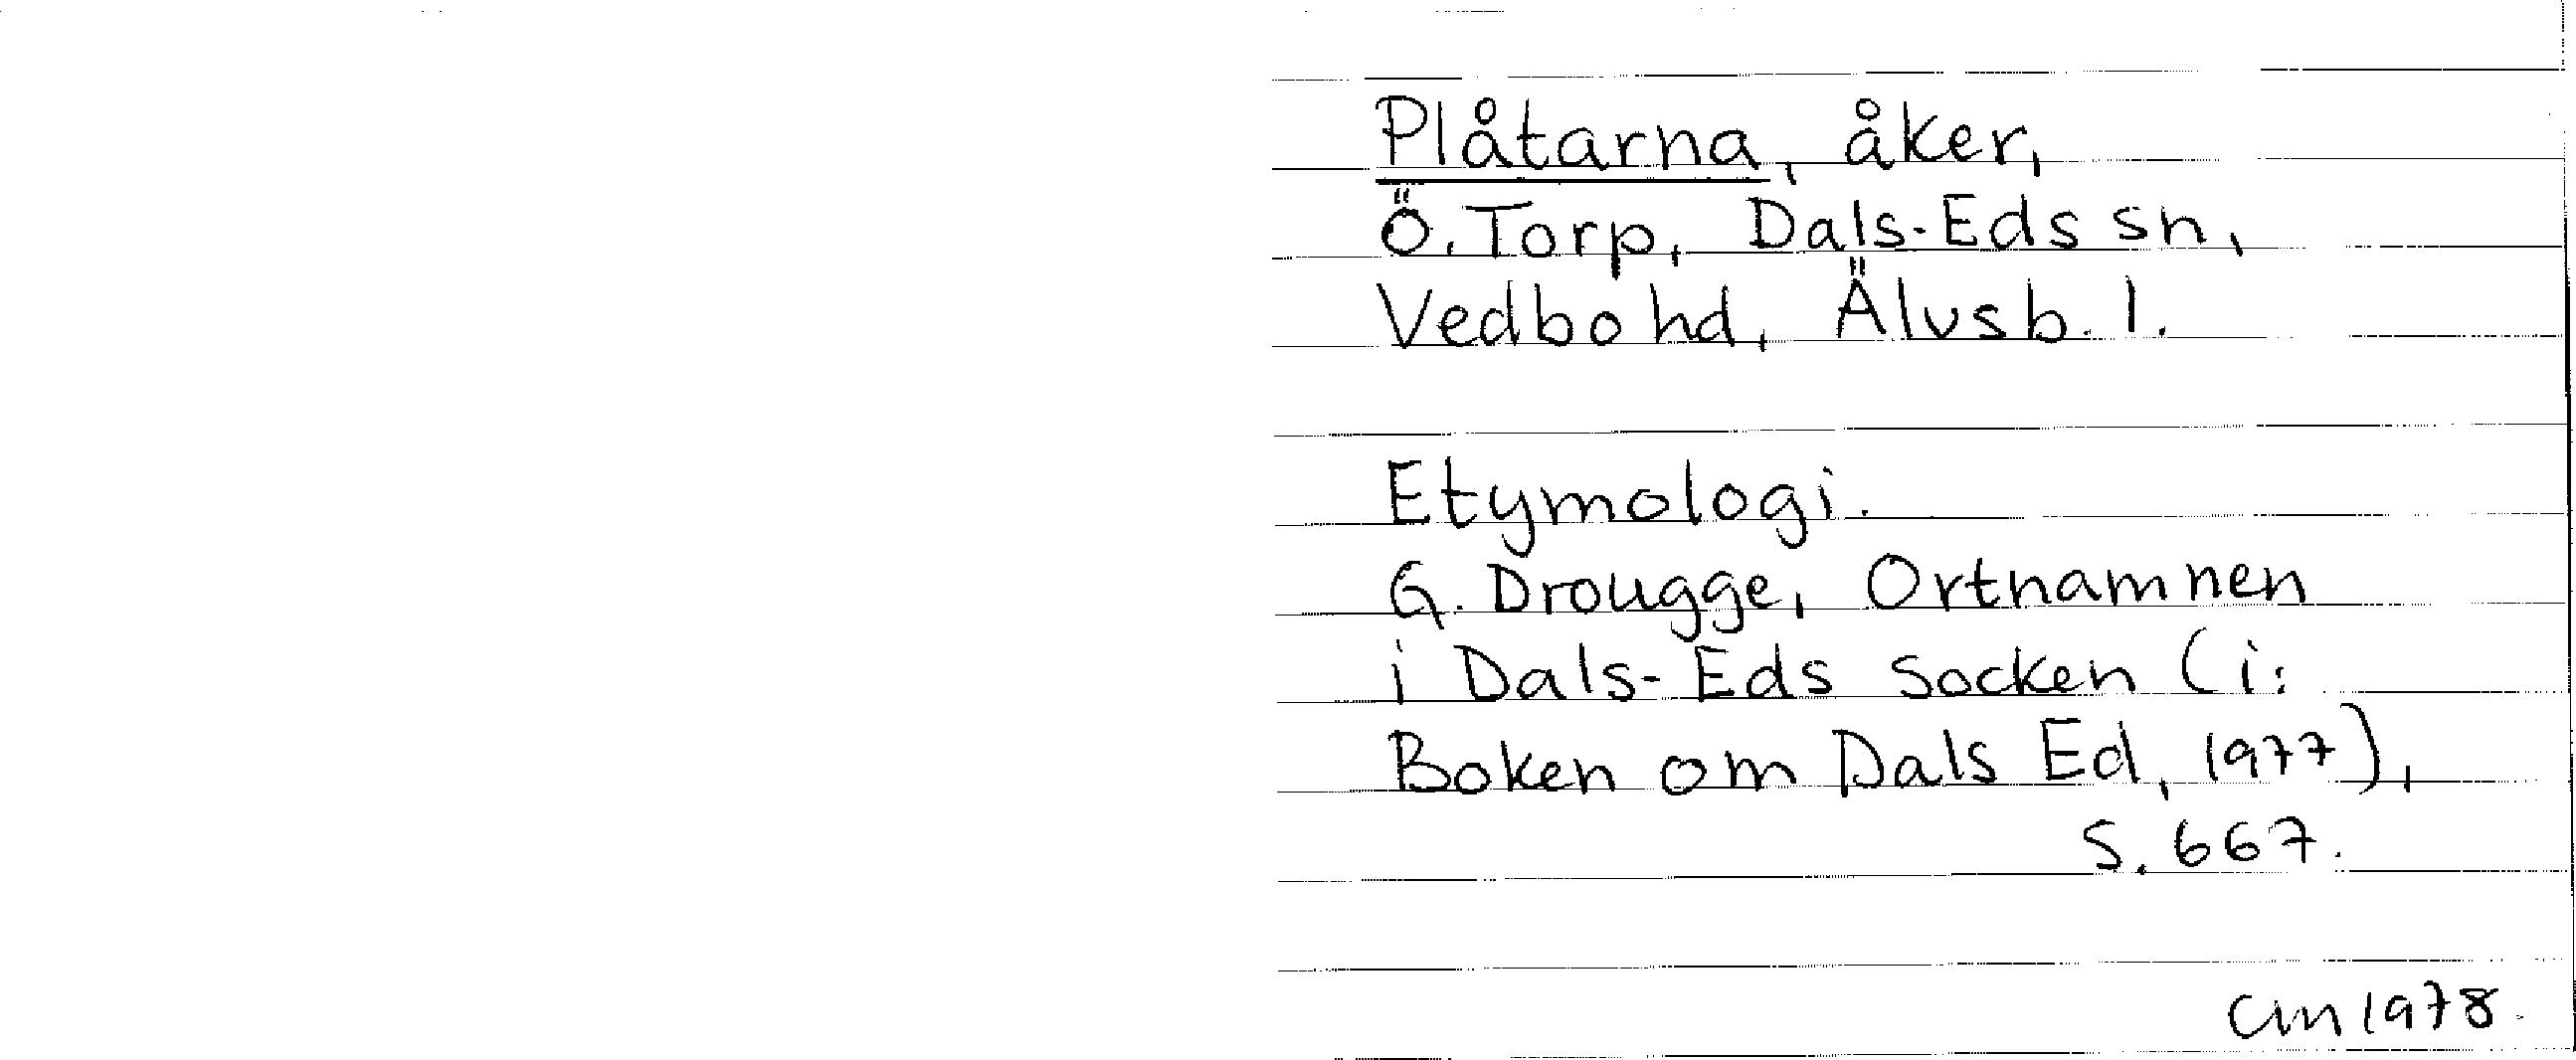 Plåtarna, åker,
Ö. Torp, Dals-Eds sn,
Vedbo hd, Älvsb. l.
Etymologi.
G. Drougge, Ortnamnen
i Dals-Eds socken (i:
Boken om Dals Ed, 1977),
s. 667.
CM 1978.